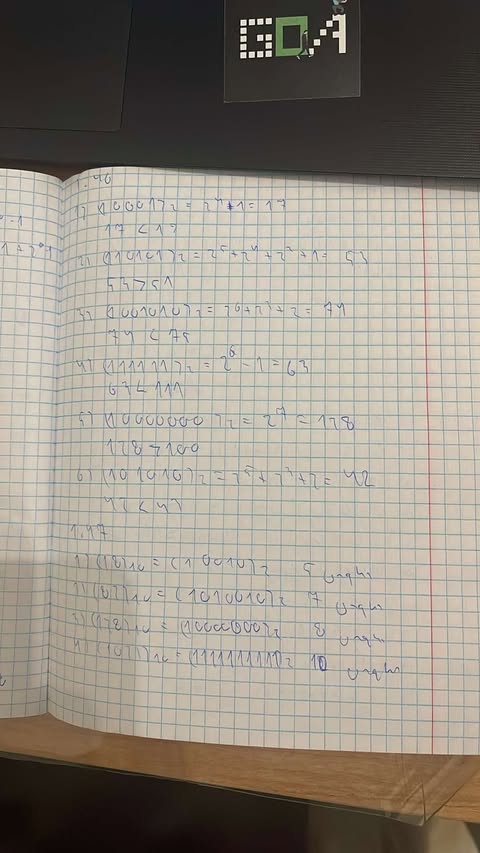 GOA
1.46
1) (10001)₂ = 2⁴+1 = 17
17 < 19
2) (110101)₂ = 2⁵+2⁴+2²+1 = 53
53 > 51
3) (1001010)₂ = 2⁶+2³+2 = 74
74 < 75
4) (111111)₂ = 2⁶-1 = 63
63 < 111
5) (10000000)₂ = 2⁷ = 128
128 > 100
6) (101010)₂ = 2⁵+2³+2 = 42
1.47
1) (18)₁₀ = (10010)₂ 5
2) (82)₁₀ = (1010010)₂ 7
3) (128)₁₀ = (10000000)₂ 8
4) (1023)₁₀ = (1111111111)₂ 10